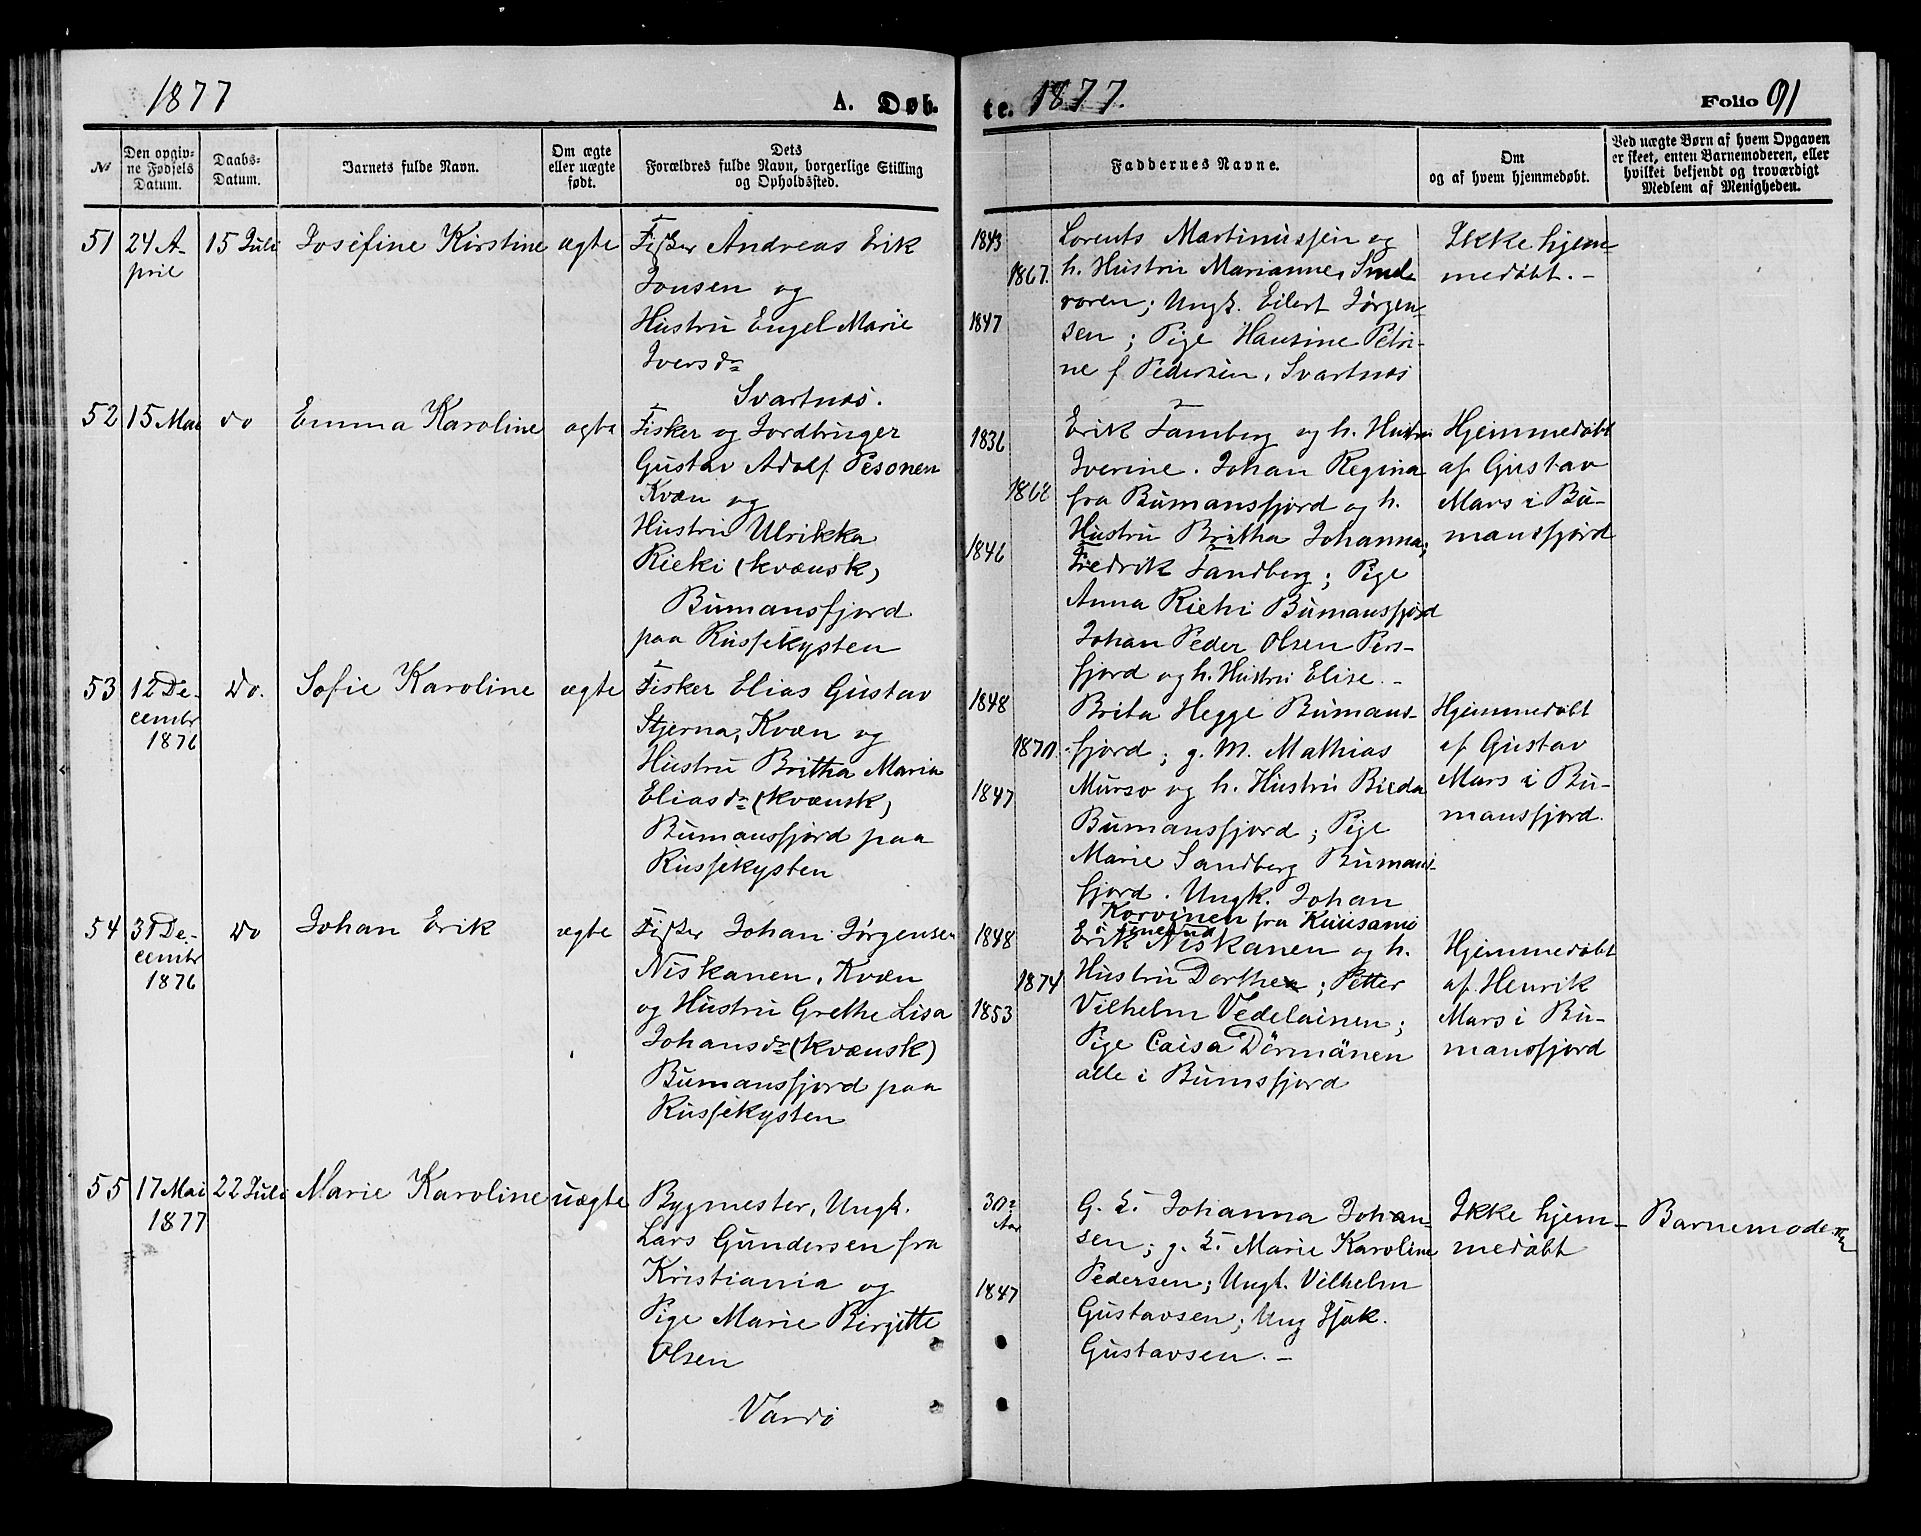 1877
A. Døb.
te. 1877.
Folio 91
№
Den opgiv-
ne Fødsels
Datum.
Daabs-
Datum.
Barnets fulde Navn.
Om ægte
eller uægte
født.
Dets
Forældres fulde Navn, borgerlige Stilling
og Opholdssted.
Faddernes Navne.
Om
og af hvem hjemmedøbt.
Ved uægte Børn af hvem Opgaven
er skeet, enten Barnemoderen, eller
hvilket bekjendt og troværdigt
Medlem af Menigheden.
51
24 A-
pril
15 Juli
Josefine Kirstine
ægte
Fisker Andreas Erik
Jonsen og
Hustru Engel Marie
Iversdr
Svartnæs.
1843
1867.
1847
Lorents Martinussen og
h. Hustru Marianne, Smel
roren; Ungk. Eilert Jørgen-
sen; Pige Hansine Petri-
ne f Pedersen, Svartnæs
Ikke hjem-
medøbt.-
52
15 Mai
do
Emma Karoline
ægte
Fisker og Jordbruger
Gustav Adolf Pesonen
Kvæn og
Hustru Ulrikka
Rieki (kvænsk)
Bumansfjord
paa Russekysten
1836
1868
1846
Erik Tamberg og h. Hustru
Iverine. Johan Regina
fra Bumansfjord og h.
Hustru Britha Johanna;
Fredrik Tandberg; Pige
Anna Riehi Bumansfjord
Johan Peder Olsen Pers-
fjord og h. Hustru Elise.-
Hjemmedøbt
af Gustav
Mars i Bu-
mansfjord
53
12 De-
cembr
1876
do.
Sofie Karoline
ægte
Fisker Elias Gustav
Stjerna, Kvæn og
Hustru Britha Maria
Eliasdr (kvænsk)
Bumansfjord paa
Russekysten
1848
1870.
1847
Brita Hegge Bumans-
fjord; g. M. Mathias
Murso og h. Hustru Bieda
Bumansfjord; Pige
Marie Sandberg Bumans-
fjord. Ungk. Johan
Korvinen fra Kuusamo
i Finland
Hjemmedøbt
af Gustav
Mars i Bu-
mansfjord.
54
31 De-
cembr
1876
do
Johan Erik
ægte
Fisker Johan Jørgensen
Niskanen, Kvæn
og Hustru Grethe Lisa
Johansdr (kvænsk)
Bumansfjord paa
Russekysten
1848
1874
1853
Erik Niskanen og h.
Hustru Dorthe; Petter
Vilhelm Vedelainen;
Pige Caisa Dörmänen
alle i Bumsfjord
Hjemmedøbt
af Henrik
Mars i Bu-
mansfjord
55
17 Mai
1877
22 Juli
Marie Karoline
uægte
Bygmester, Ungk.
Lars Gundersen fra
Kristiania og
Pige Marie Birgitte
Olsen
Vardø
30
Aar
1847
G. K. Johanna Johan-
sen; g. K. Marie Karoline
Pedersen; Ungk. Vilhelm
Gustavsen; Ung Isak.
Gustavsen.-
Ikke hjem-
medøbt
Barnemoderen